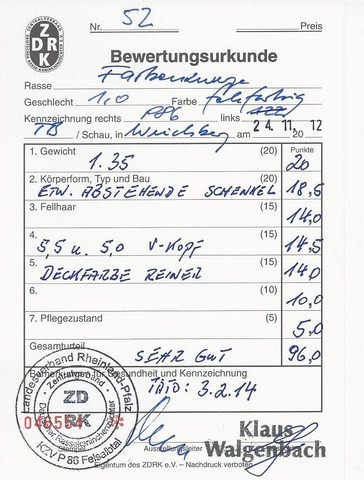 ZENTRALVERBAND
ZDRK
Nr. 52 Preis
Bewertungsurkunde
Rasse Farbenzwerge
Geschlecht 1,0 Farbe fehfarbig
Kennzeichnung rechts P86 links
TB / Schau, in am 24. 11. 20 12
1. Gewicht (20) Punkte
1.35 20
2. Körperform, Typ und Bau (20)
ETW. ABSTEHENDE SCHENKEL 18,5
3. Fellhaar (15)
14,0
4. (15)
5,5 u. 5,0 V-KOPF 14,5
5. (15)
DECKFARBE REINER 14,0
6. (10)
10,0
7. Pflegezustand (5)
5,0
Gesamturteil
SEHR GUT 96,0
Bemerkungen zu Gesundheit und Kennzeichnung
3.2.14
Landesverband Rheinland-Pfalz
Zentralverband
Deutscher Rassekaninchenzüchter
ZD
RK
Stempel
KZV P 86 Felsalbtal
046554
Klaus
Walgenbach
Ausstellungsleiter
Eigentum des ZDRK e.V. – Nachdruck verboten